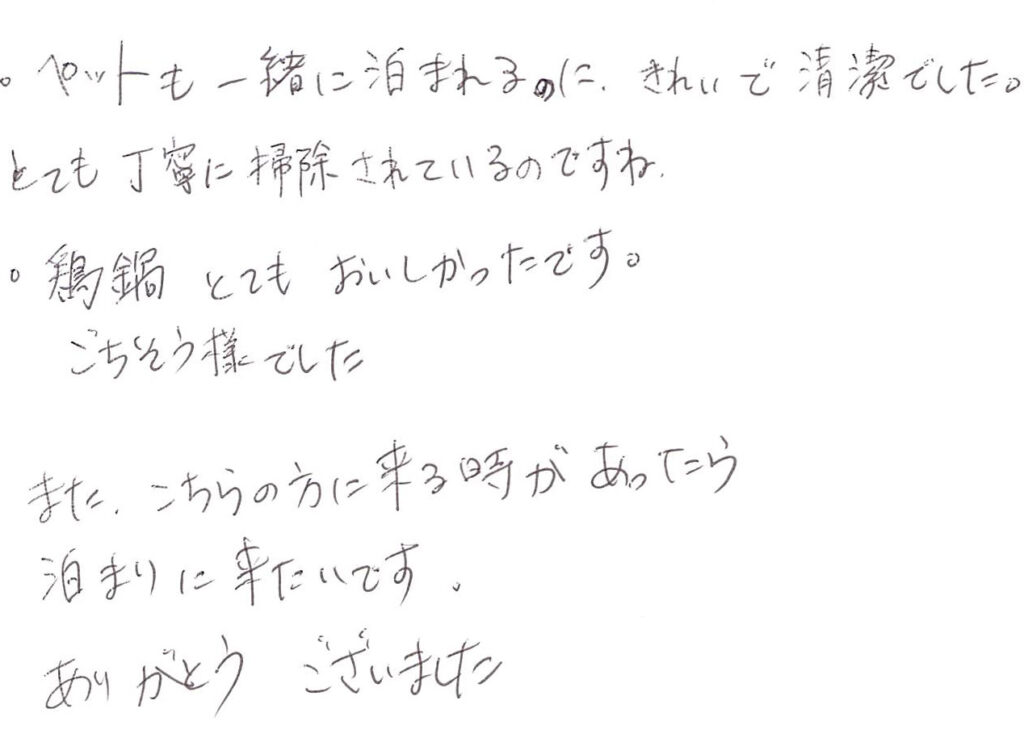 。ペットも一緒に泊まれるのに、きれいで清潔でした。
とても丁寧に掃除されているのですね、
。鶏鍋 とても おいしかったです。
ごちそう様でした
また、こちらの方に来る時があったら
泊まりに来たいです、
ありがとう ございました